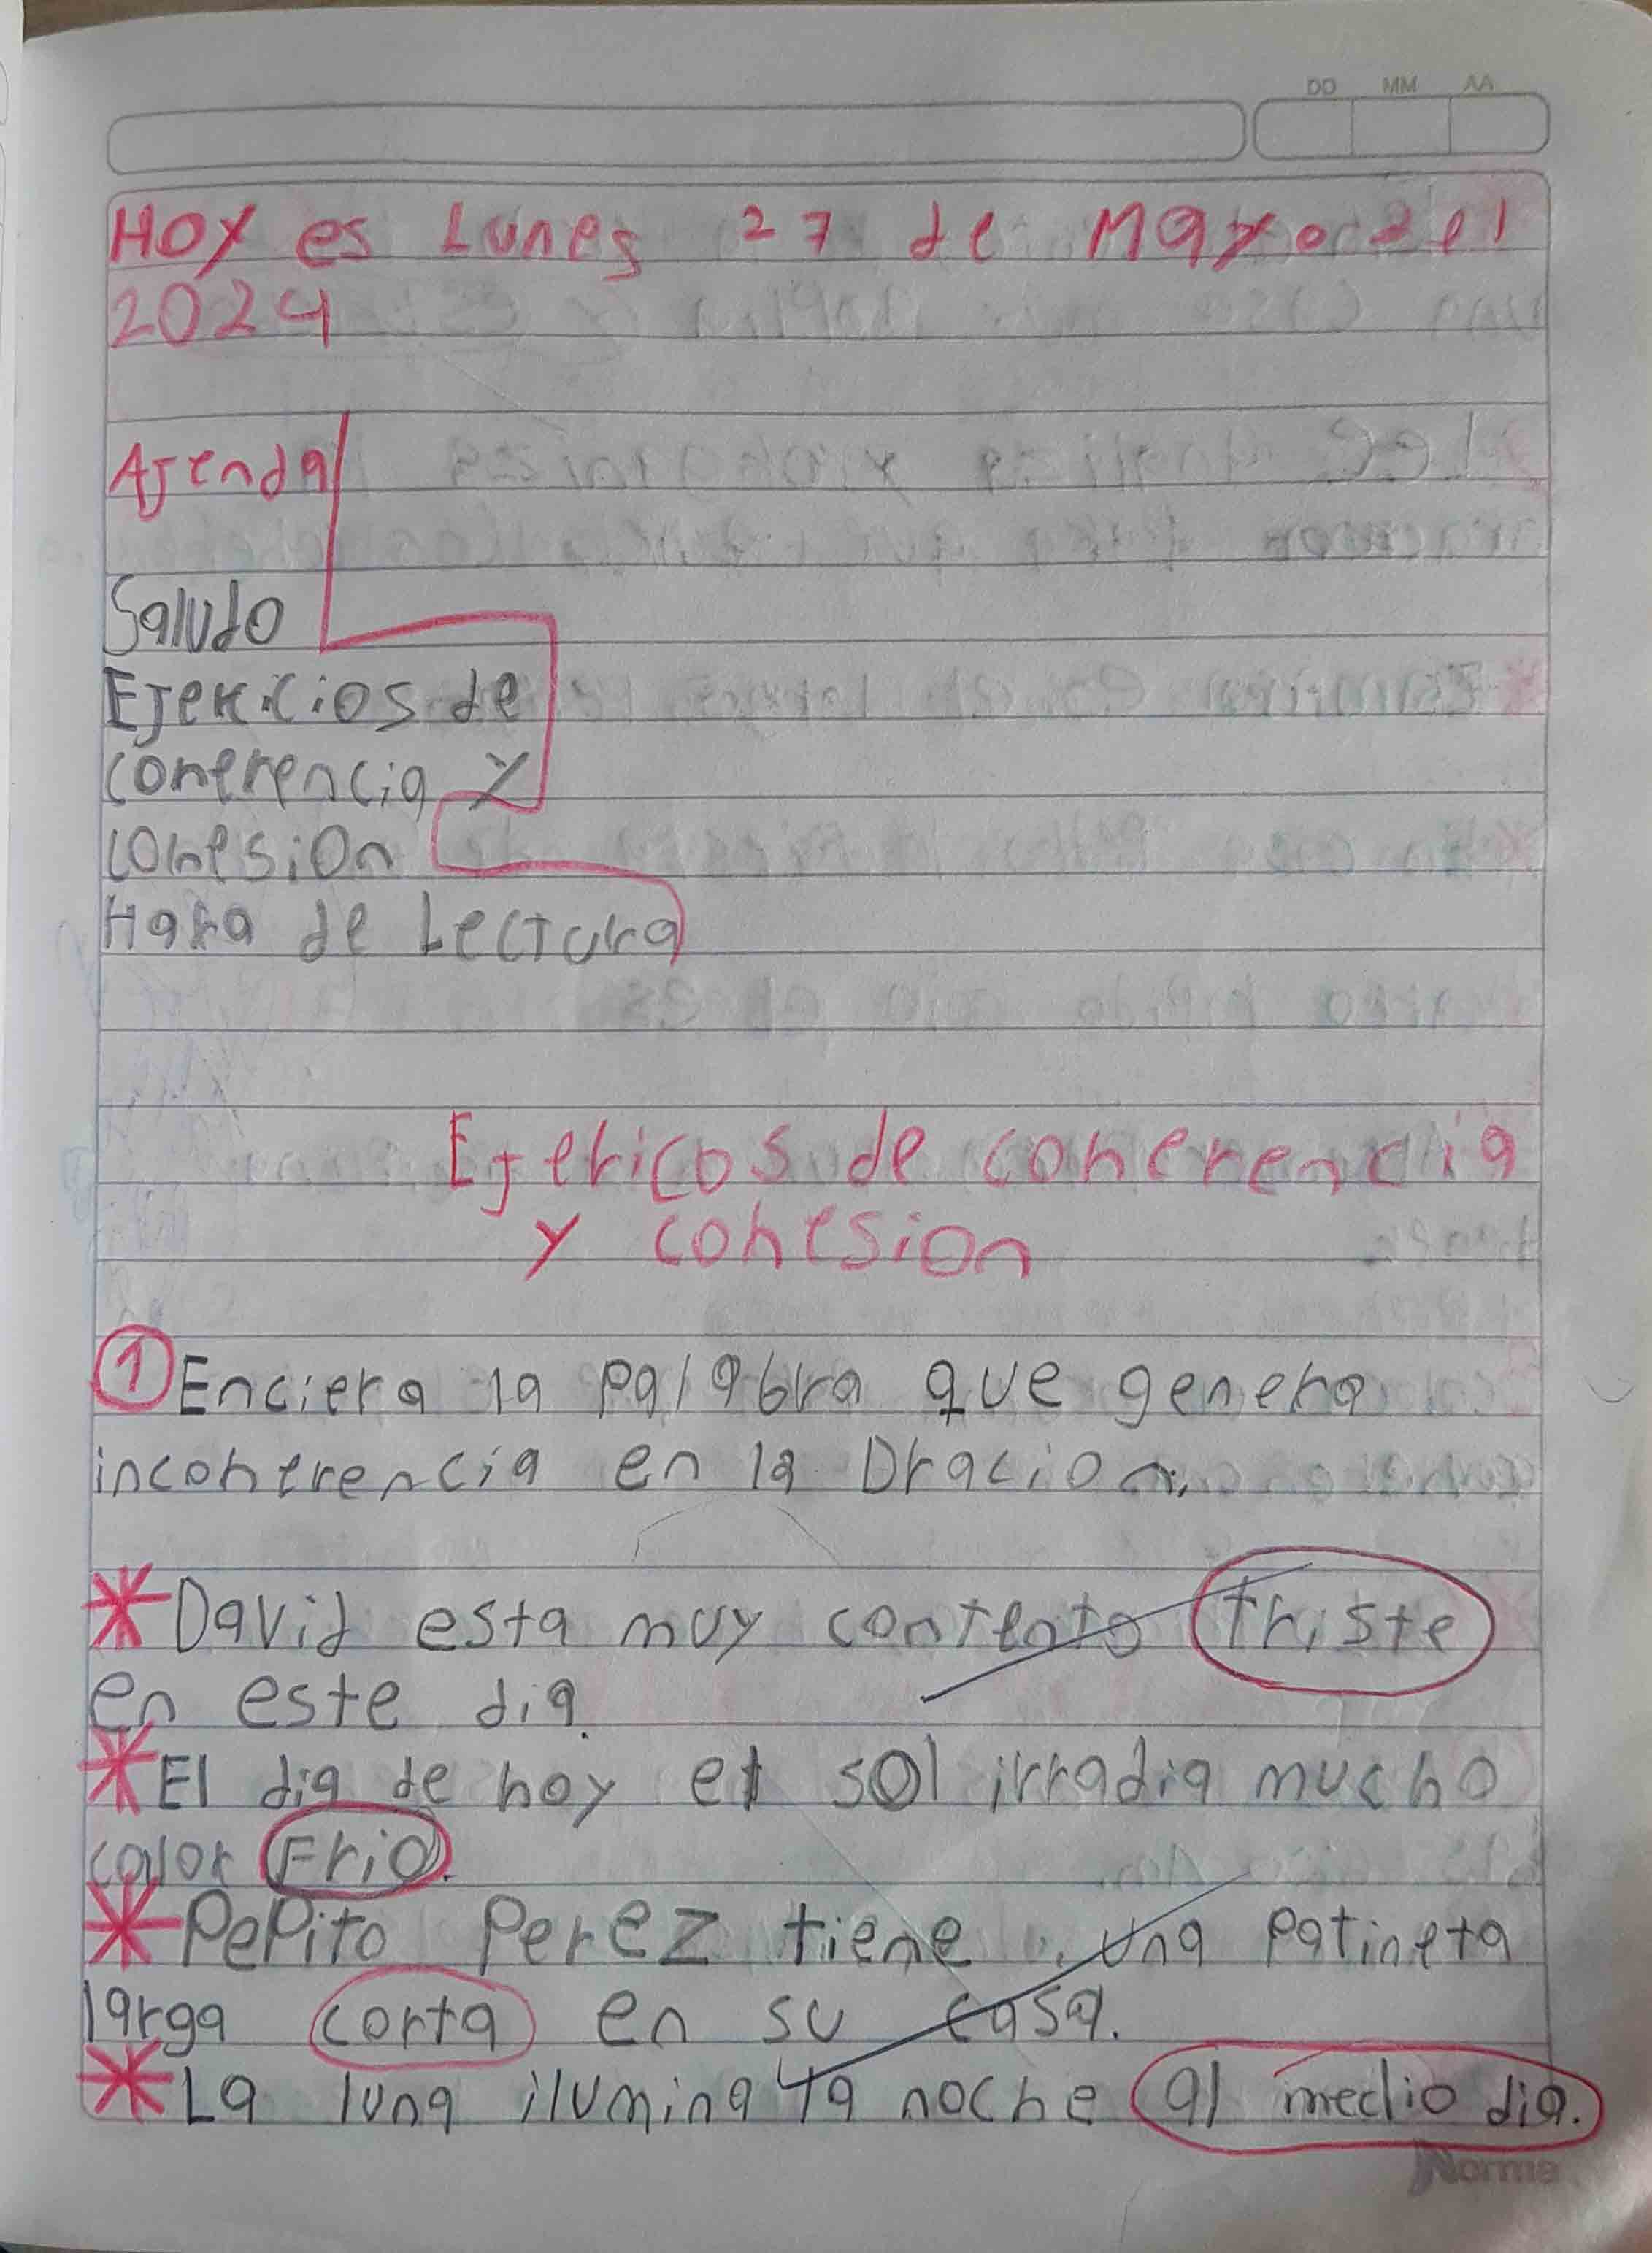 DD MM AA
Hoy es Lunes 27 de Mayo del
2024
Ajenda
Saludo
Ejercicios de
coherencia y
cohesion
Hara de Lectura
Ejericos de coherencia
y cohesion
1 Enciera la palabra que genera
incoherencia en la Oracion.
* David esta muy contento triste
en este dia.
* El dia de hoy el sol irradia mucho
calor Frio.
* Pepito Perez tiene una patineta
larga corta en su casa.
* La luna ilumina la noche al medio dia.
Norma